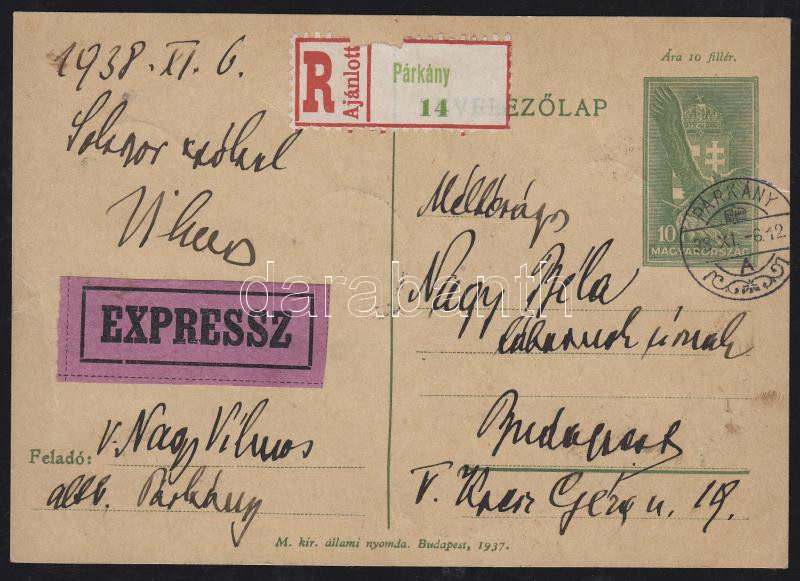 1938. XI. 6.
R
Ajánlott
Párkány
14
Ára 10 fillér.
VELEZŐLAP
csókkal
Vilmos
10
MAGYARORSZÁG
PÁRKÁNY
38 XI. -6. 12
A
EXPRESSZ
darabanth
Méltóságos
Nagy Béla
tábornok úrnak
Budapest
V. Géza u. 19.
Feladó: v. Nagy Vilmos
altb. Párkány
M. kir. állami nyomda. Budapest, 1937.